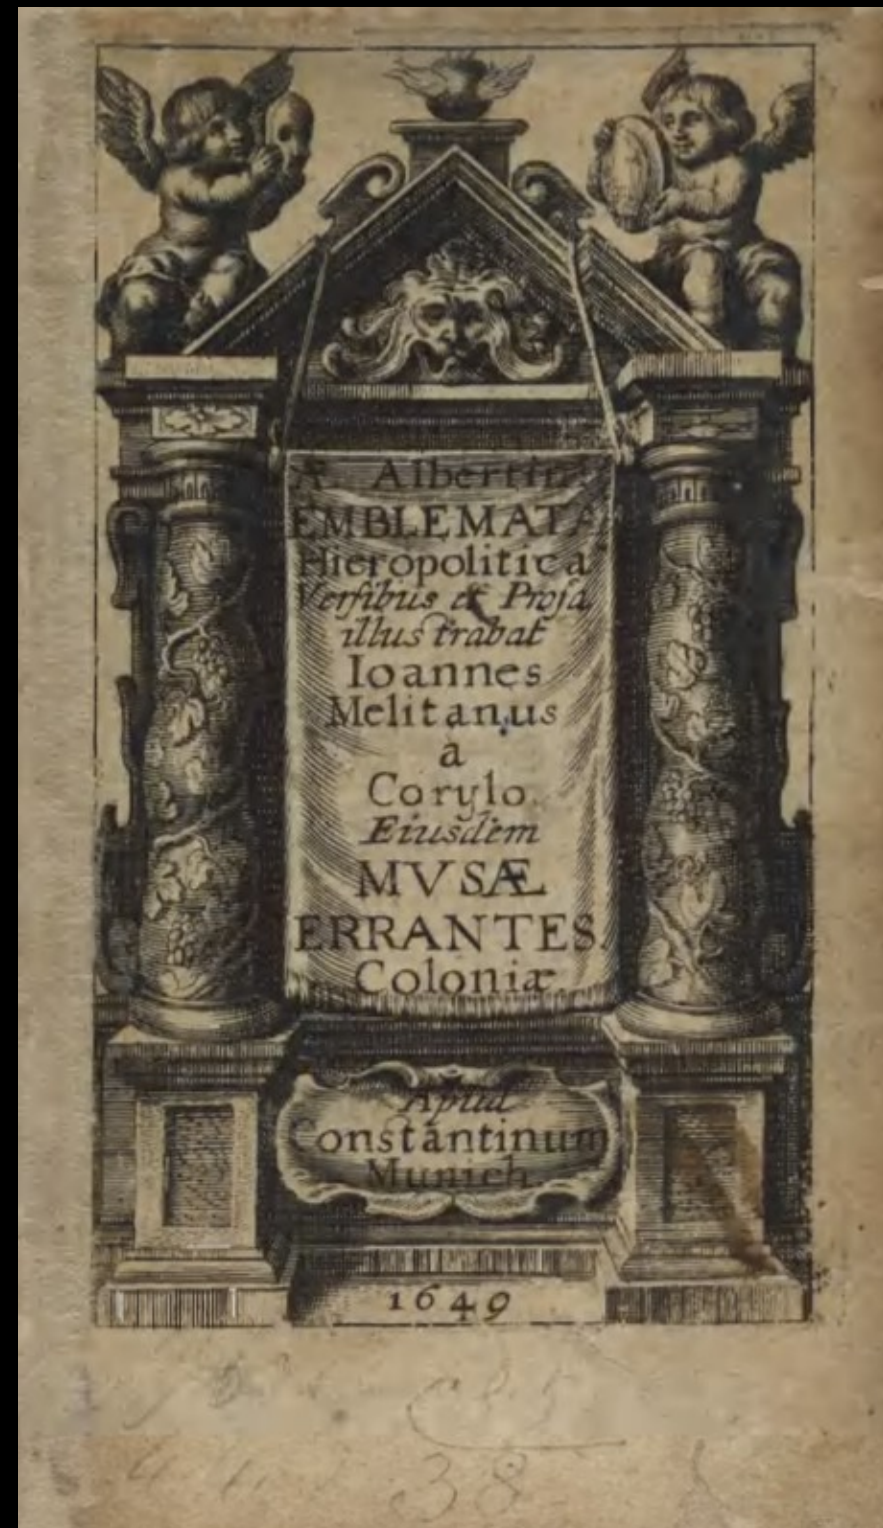 Æ. Albertini
EMBLEMATA
Hieropolitica
Versibus et Prosa
illustrabat
Ioannes
Melitanus
à
Corylo.
Eiusdem
MVSÆ
ERRANTES.
Coloniæ.
Apud
Constantinum
Munich.
1649
38